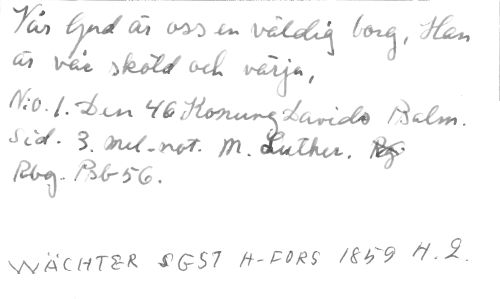 Vår Gud är oss en väldig borg, Han
är vår sköld och värja,
N:o. 1. Den 46 Konung Davids Psalm.
Sid. 3. mel-not. M. Luther.
Rbg. PsB 56.
WÄCHTER SGST H-FORS 1859 H. 2.